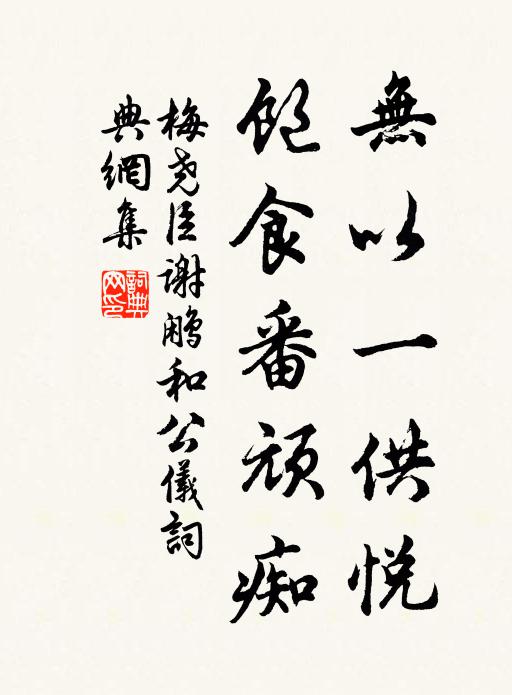 無以一供悅
飽食番頑痴
梅堯臣謝鵰和公儀詞
典網集
詞典网印